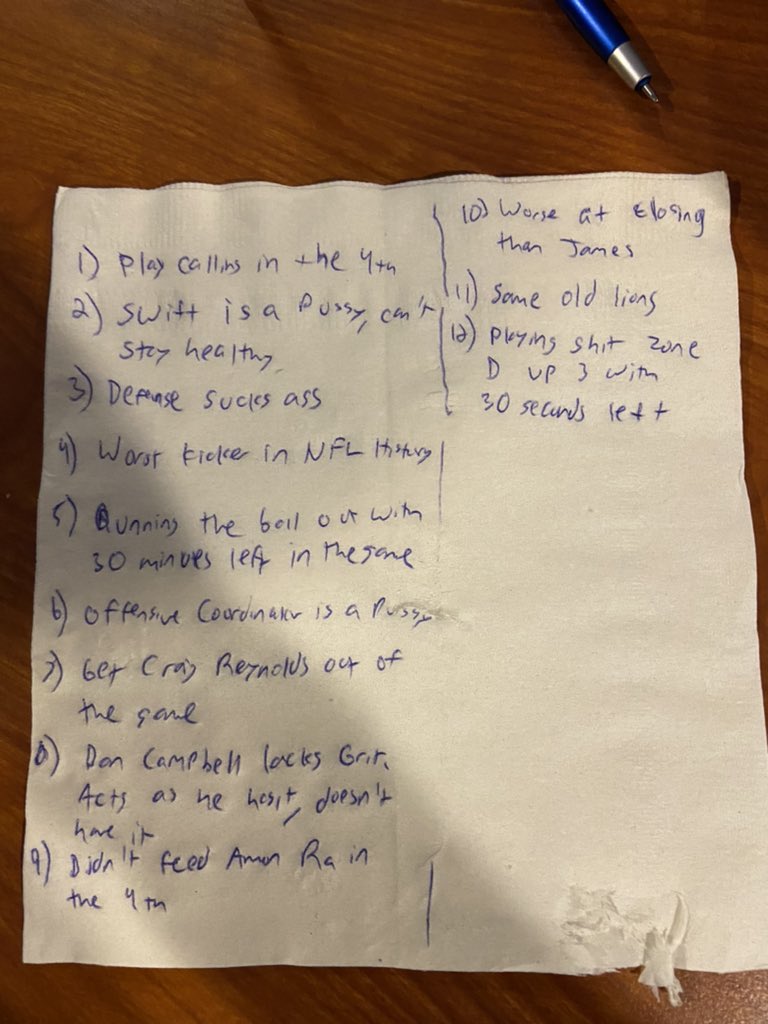 1) Play calling in the 4th
2) Swift is a Pussy, can't
stay healthy
3) Defense sucks ass
4) Worst kicker in NFL History
5) Running the ball out with
30 minues left in the game
6) Offensive Coordinator is a Pussy
7) Get Craig Reynolds out of
the game
8) Dan Campbell lacks Grit.
Acts as he has it, doesn't
have it
9) Didn't feed Amon Ra in
the 4th
10) Worse at closing
than James
11) Same old lions
12) Playing shit zone
D up 3 with
30 seconds left